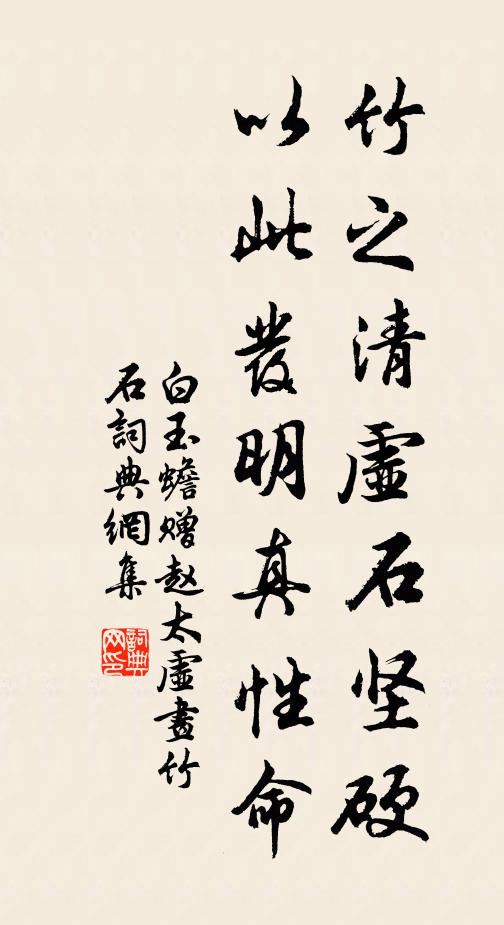 竹之清虛石坚硬
以此發明真性命
白玉蟾赠赵太虛畫竹
石詞典網集
詞典
网印